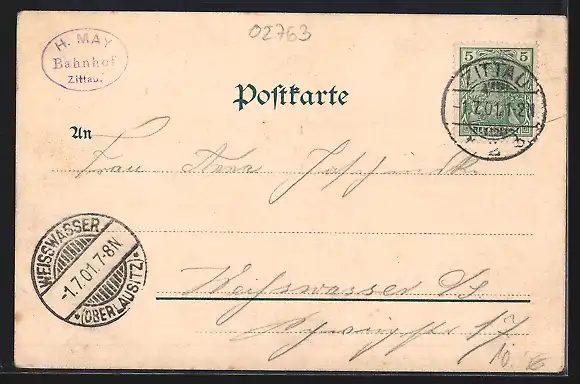 02763
H. MAY
Bahnhof
Zittau.
5 5
ZITTAU
1.7.01.
* 2 b
Postkarte
An
Frau Anna
WEISSWASSER
-1.7.01.7-8N.
*(OBERLAUSITZ)*
Weisswasser O/S
17